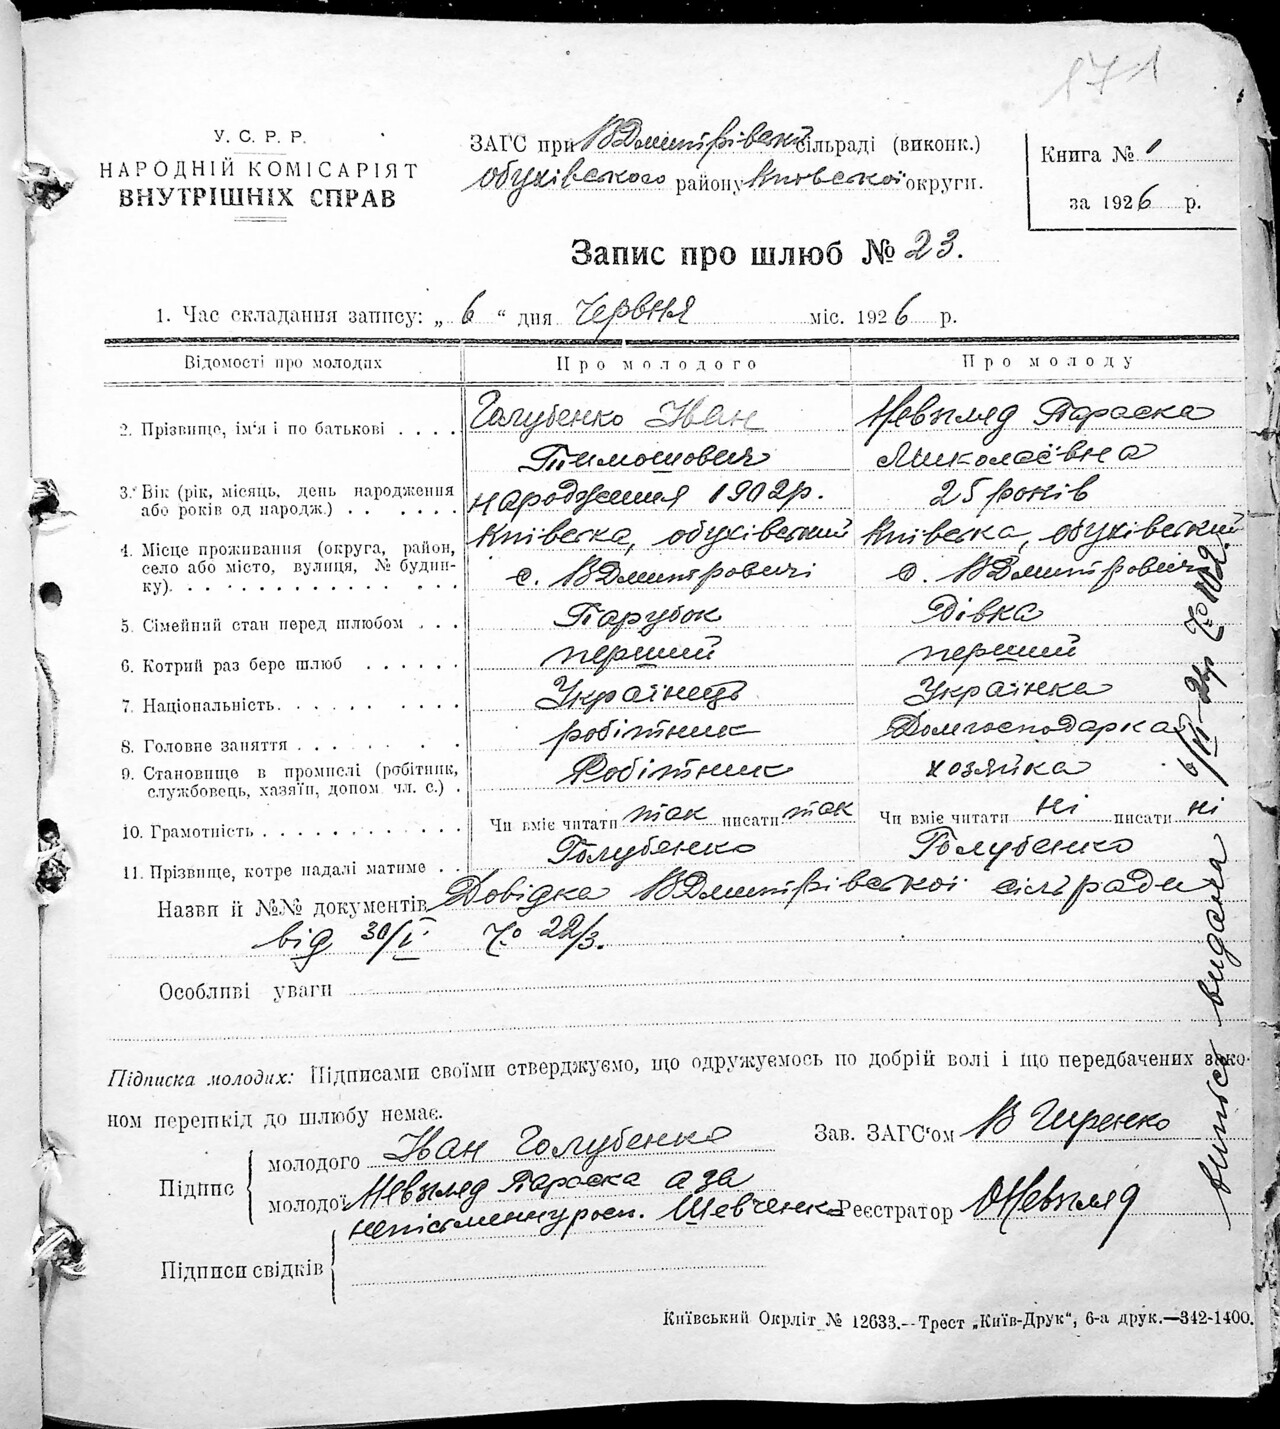 171
У. С. Р. Р.
НАРОДНІЙ КОМІСАРІЯТ
ВНУТРІШНІХ СПРАВ
ЗАГС при ВДмитрівській сільраді (виконк.)
Обухівського району Київської округи.
Книга № 1
за 1926 р.
Запис про шлюб № 23.
1. Час складання запису: „ 6 “ дня Червня міс. 1926 р.
Відомості про молодих Про молодого Про молоду
2. Прізвище, ім'я і по батькові . . . . Голубенко Іван Невзгляд Параска
Тимошович Миколаєвна
3. Вік (рік, місяць, день народження народження 1902р. 25 років
або років од народж.) . . . . . .
4. Місце проживання (округа, район, Київська, обухівський Київська, обухівський
село або місто, вулиця, № будин- с. ВДмитровичі с. ВДмитровичі
ку). . . . . . . . . . . . . . .
5. Сімейний стан перед шлюбом . . . Парубок Дівка
6. Котрий раз бере шлюб . . . . . . перший перший
7. Національність. . . . . . . . . . Українець Українка
8. Головне заняття . . . . . . . . робітник Домгосподарка
9. Становище в промислі (робітник, Робітник хозяйка
службовець, хазяїн, допом чл. с.) .
10. Грамотність . . . . . . . . . . . Чи вміє читати так писати так Чи вміє читати ні писати ні
11. Прізвище, котре надалі матиме . . Голубенко Голубенко
Назви й №№ документів Довідка ВДмитрівської сільради
від 30/V № 22/3.
Особливі уваги
Підписка молодих: Підписами своїми стверджуємо, що одружуємось по добрій волі і що передбачених зако-
ном перешкід до шлюбу немає.
Зав. ЗАГС'ом В Гиренко
Підпис
молодого Іван Голубенко
молодої Невзгляд Параска а за
непісьменну росп. Шевченко
Реєстратор ОНевзгляд
Підписи свідків
Київський Окрліт № 12633.--Трест „Київ-Друк“, 6-а друк.—342-1400.
випись видана 6/VI-26р №